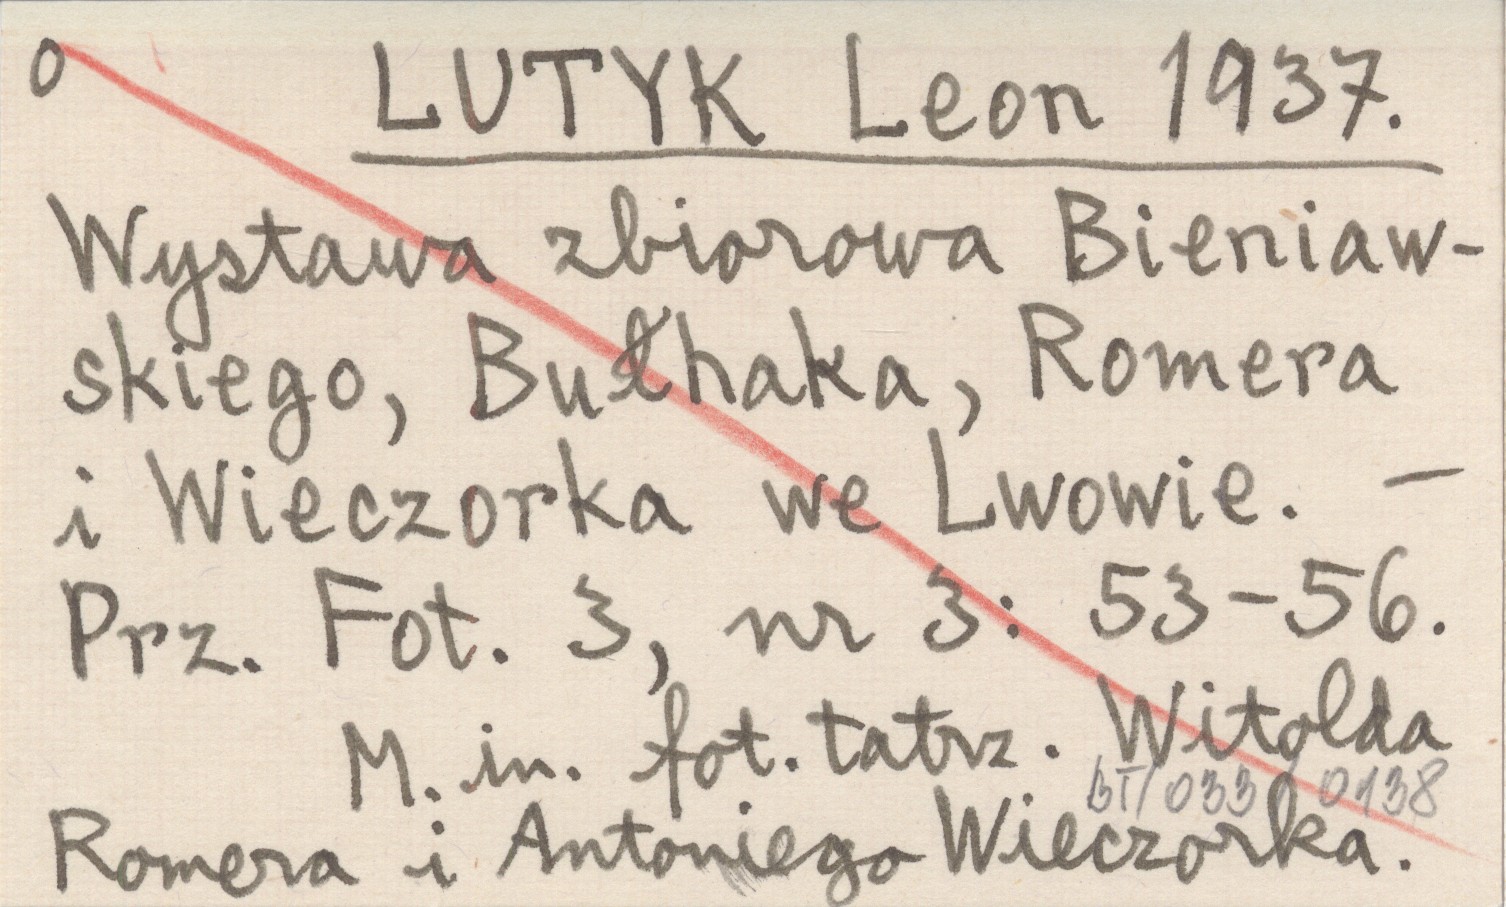 o LUTYK Leon 1937.
Wystawa zbiorowa Bieniaw-
skiego, Bułhaka, Romera
i Wieczorka we Lwowie. —
Prz. Fot. 3, nr 3: 53-56.
M. in. fot. tatrz. Witolda
BT/033/0138
Romera i Antoniego Wieczorka.